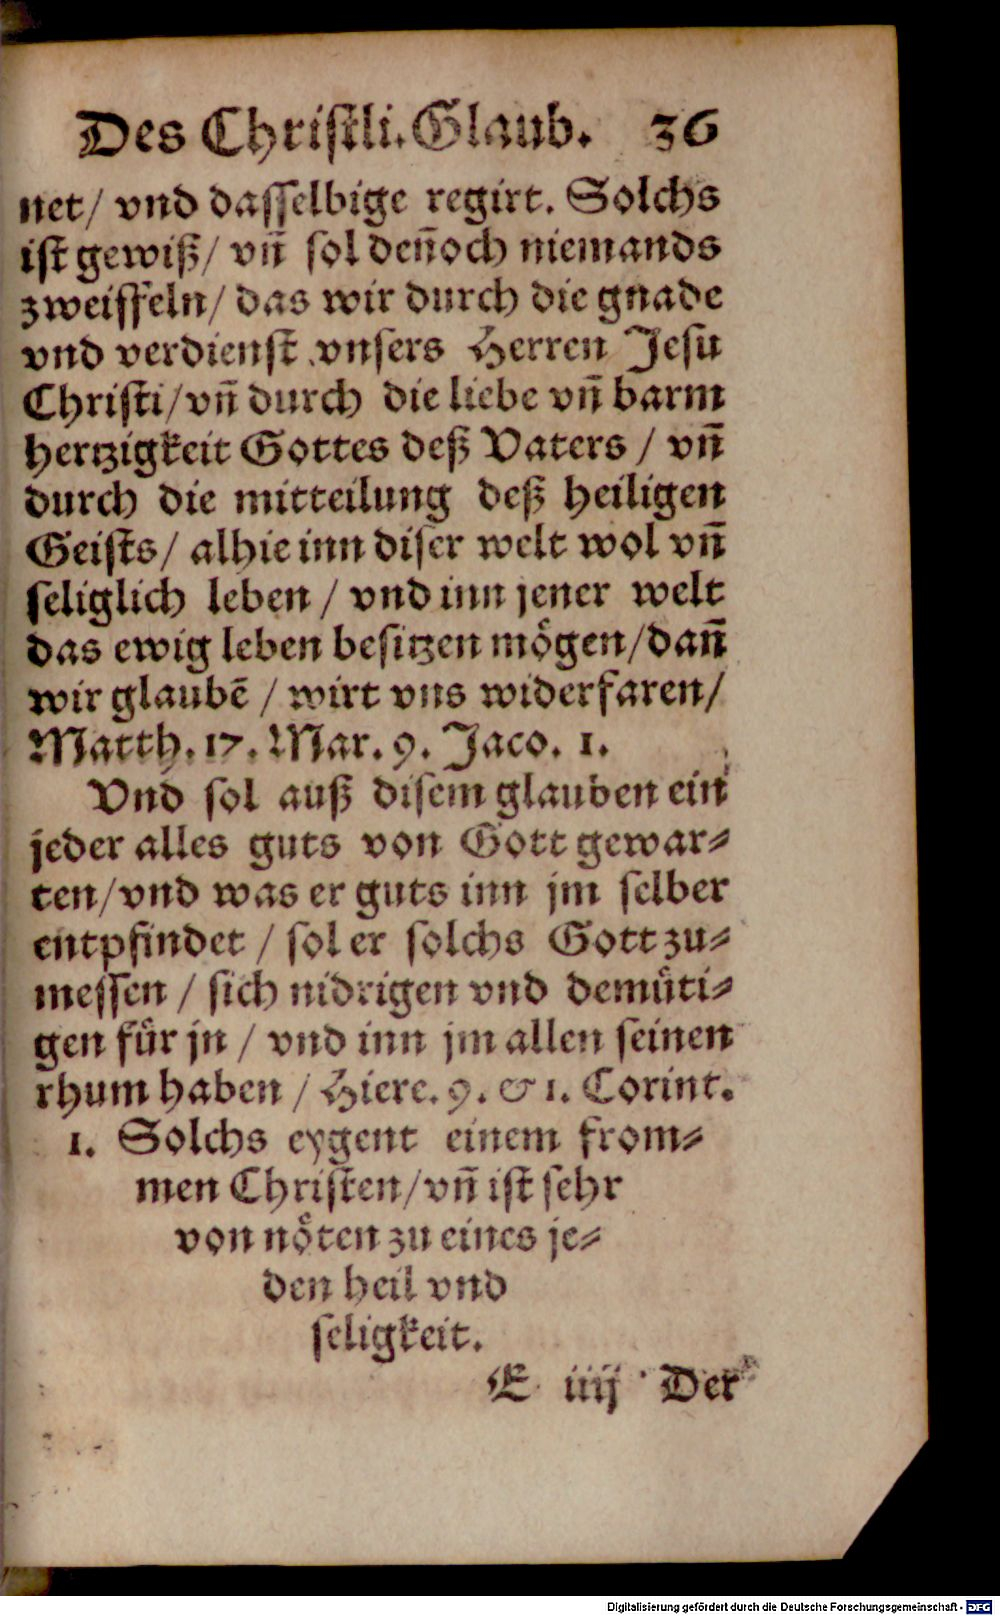 Des Christli. Glaub. 36
net/ vnd dasselbige regirt. Solchs
ist gewiß/ vñ sol deñoch niemands
zweiffeln/ das wir durch die gnade
vnd verdienst vnsers Herren Jesu
Christi/ vñ durch die liebe vñ barm
hertzigkeit Gottes deß Vaters / vñ
durch die mitteilung deß heiligen
Geists/ alhie inn diser welt wol vñ
seliglich leben / vnd inn jener welt
das ewig leben besitzen mögen/ dañ
wir glaubē / wirt vns widerfaren/
Matth. 17. Mar. 9. Jaco. 1.
Vnd sol auß disem glauben ein
jeder alles guts von Gott gewar⸗
ten/ vnd was er guts inn jm selber
entpfindet / sol er solchs Gott zu⸗
messen / sich nidrigen vnd demüti⸗
gen für jn / vnd inn jm allen seinen
rhum haben / Hiere. 9. & 1. Corint.
1. Solchs eygent einem from⸗
men Christen/ vñ ist sehr
von nöten zu eines je⸗
den heil vnd
seligkeit.
E iiij Der
Digitalisierung gefördert durch die Deutsche Forschungsgemeinschaft - DFG